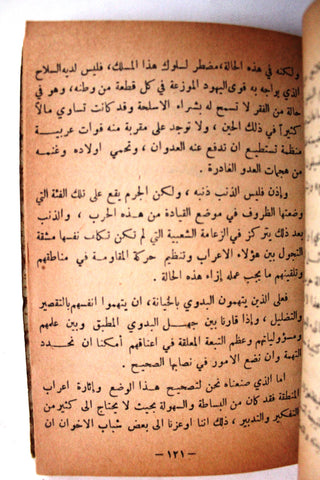 ولكنه في هذه الحالة، مضطر لسلوك هذا المسلك، فليس لديه السلاح
الذي يواجه به قوى اليهود الموزعة في كل قطعة من وطنه، وهو في
حالة من الفقر لا تسمح له بشراء الاسلحة وقد كانت تساوي مالاً
كثيراً في ذلك الحين، ولا توجد على مقربة منه قوات عربية
منظمة تستطيع ان تدفع عنه العدوان، وتحمي اولاده وغنمه
من هجمات العدو الغادرة.
وإذن فليس الذنب ذنبه، ولكن الجرم يقع على تلك الفئة التي
وضعتها الظروف في موضع القيادة من هذه الحرب، والذنب
بعد ذلك يتركز في الزعامة الشعبية التي لم تكن تكلف نفسها مشقة
التجول بين هؤلاء الاعراب وتنظيم حركة المقاومة في مناطقهم
وتلقينهم ما يجب عمله إزاء هذه الحالة.
فعلى الذين يتهمون البدوي بالخيانة، ان يتهموا انفسهم بالتقصير
والتضليل، وإذا قارنا بين جهل البدوي المطبق وبين علمهم
ومسؤولياتهم وعظم التبعة المعلقة في اعناقهم أمكننا ان نحدد
التهمة وان نضع الامور في نصابها الصحيح.
اما الذي صنعناه نحن لتصحيح هذا الوضع وإثارة اعراب
المنطقة فقد كان من البساطة والسهولة بحيث لا يحتاج الى كثير من
التفكير والتدبير، ذلك اننا اوعزنا الى بعض شباب الاخوان ان
— ١٢١ —